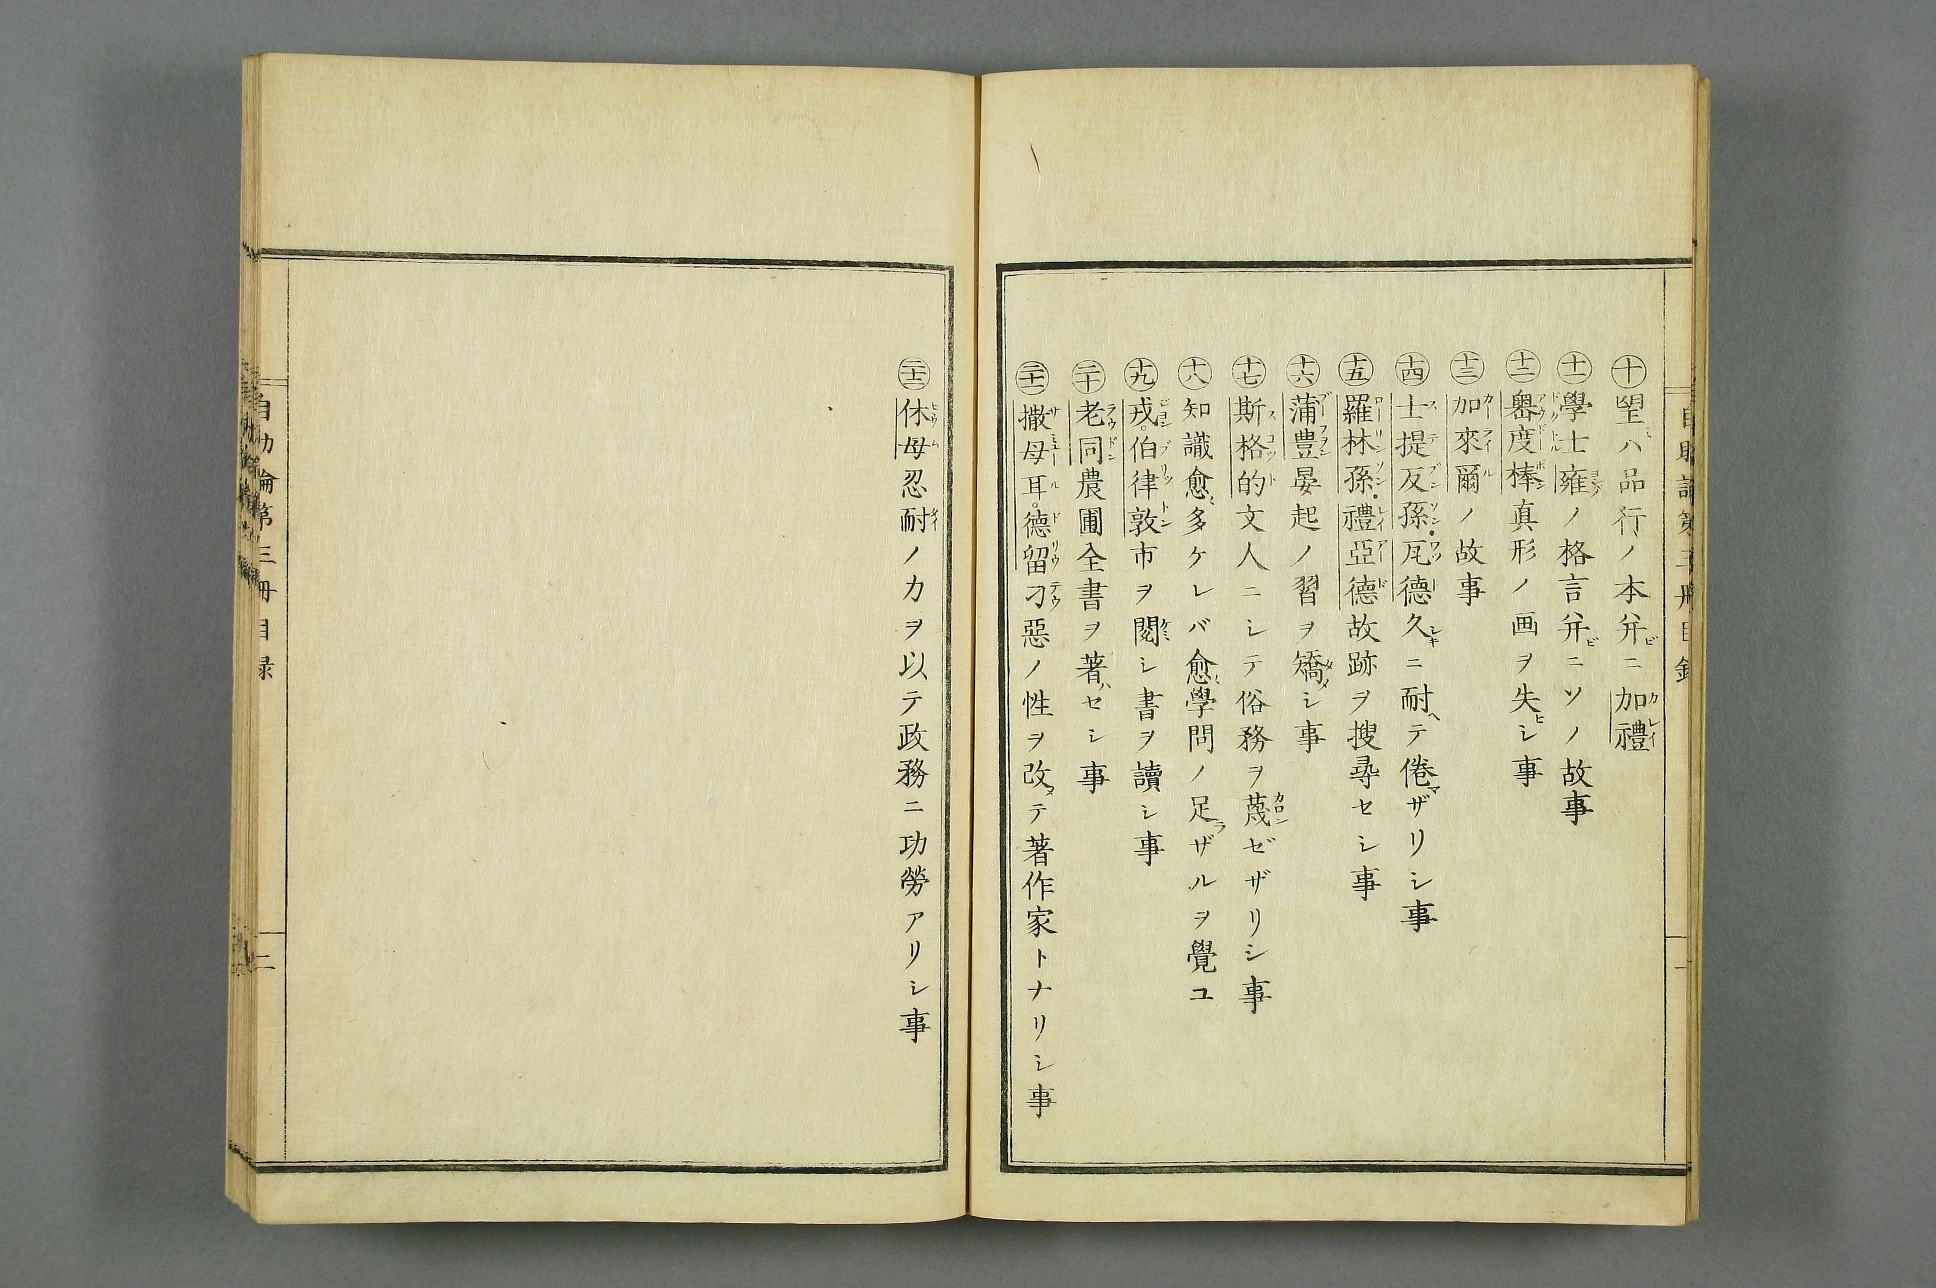 自助論第三冊目録
一
㊉望ハ品行ノ本并ニ加禮
十一學士雍ノ格言并ニソノ故事
十二舉度棒真形ノ画ヲ失ヒシ事
十三加來爾ノ故事
十四士提反孫・瓦德久ニ耐ヘテ倦マザリシ事
十五羅林孫・禮亞德故跡ヲ搜尋セシ事
十六蒲豊晏起ノ習ヲ矯メシ事
十七斯格的文人ニシテ俗務ヲ蔑ゼザリシ事
十八知識愈多ケレバ愈學問ノ足ラザルヲ覺ユ
十九戎。伯律敦市ヲ閱シ書ヲ讀シ事
二十老同農圃全書ヲ著ハセシ事
二十一撒母耳。德留刁惡ノ性ヲ改メテ著作家トナリシ事
二十二休母忍耐ノ力ヲ以テ政務ニ功勞アリシ事
自助論第三冊目録
二